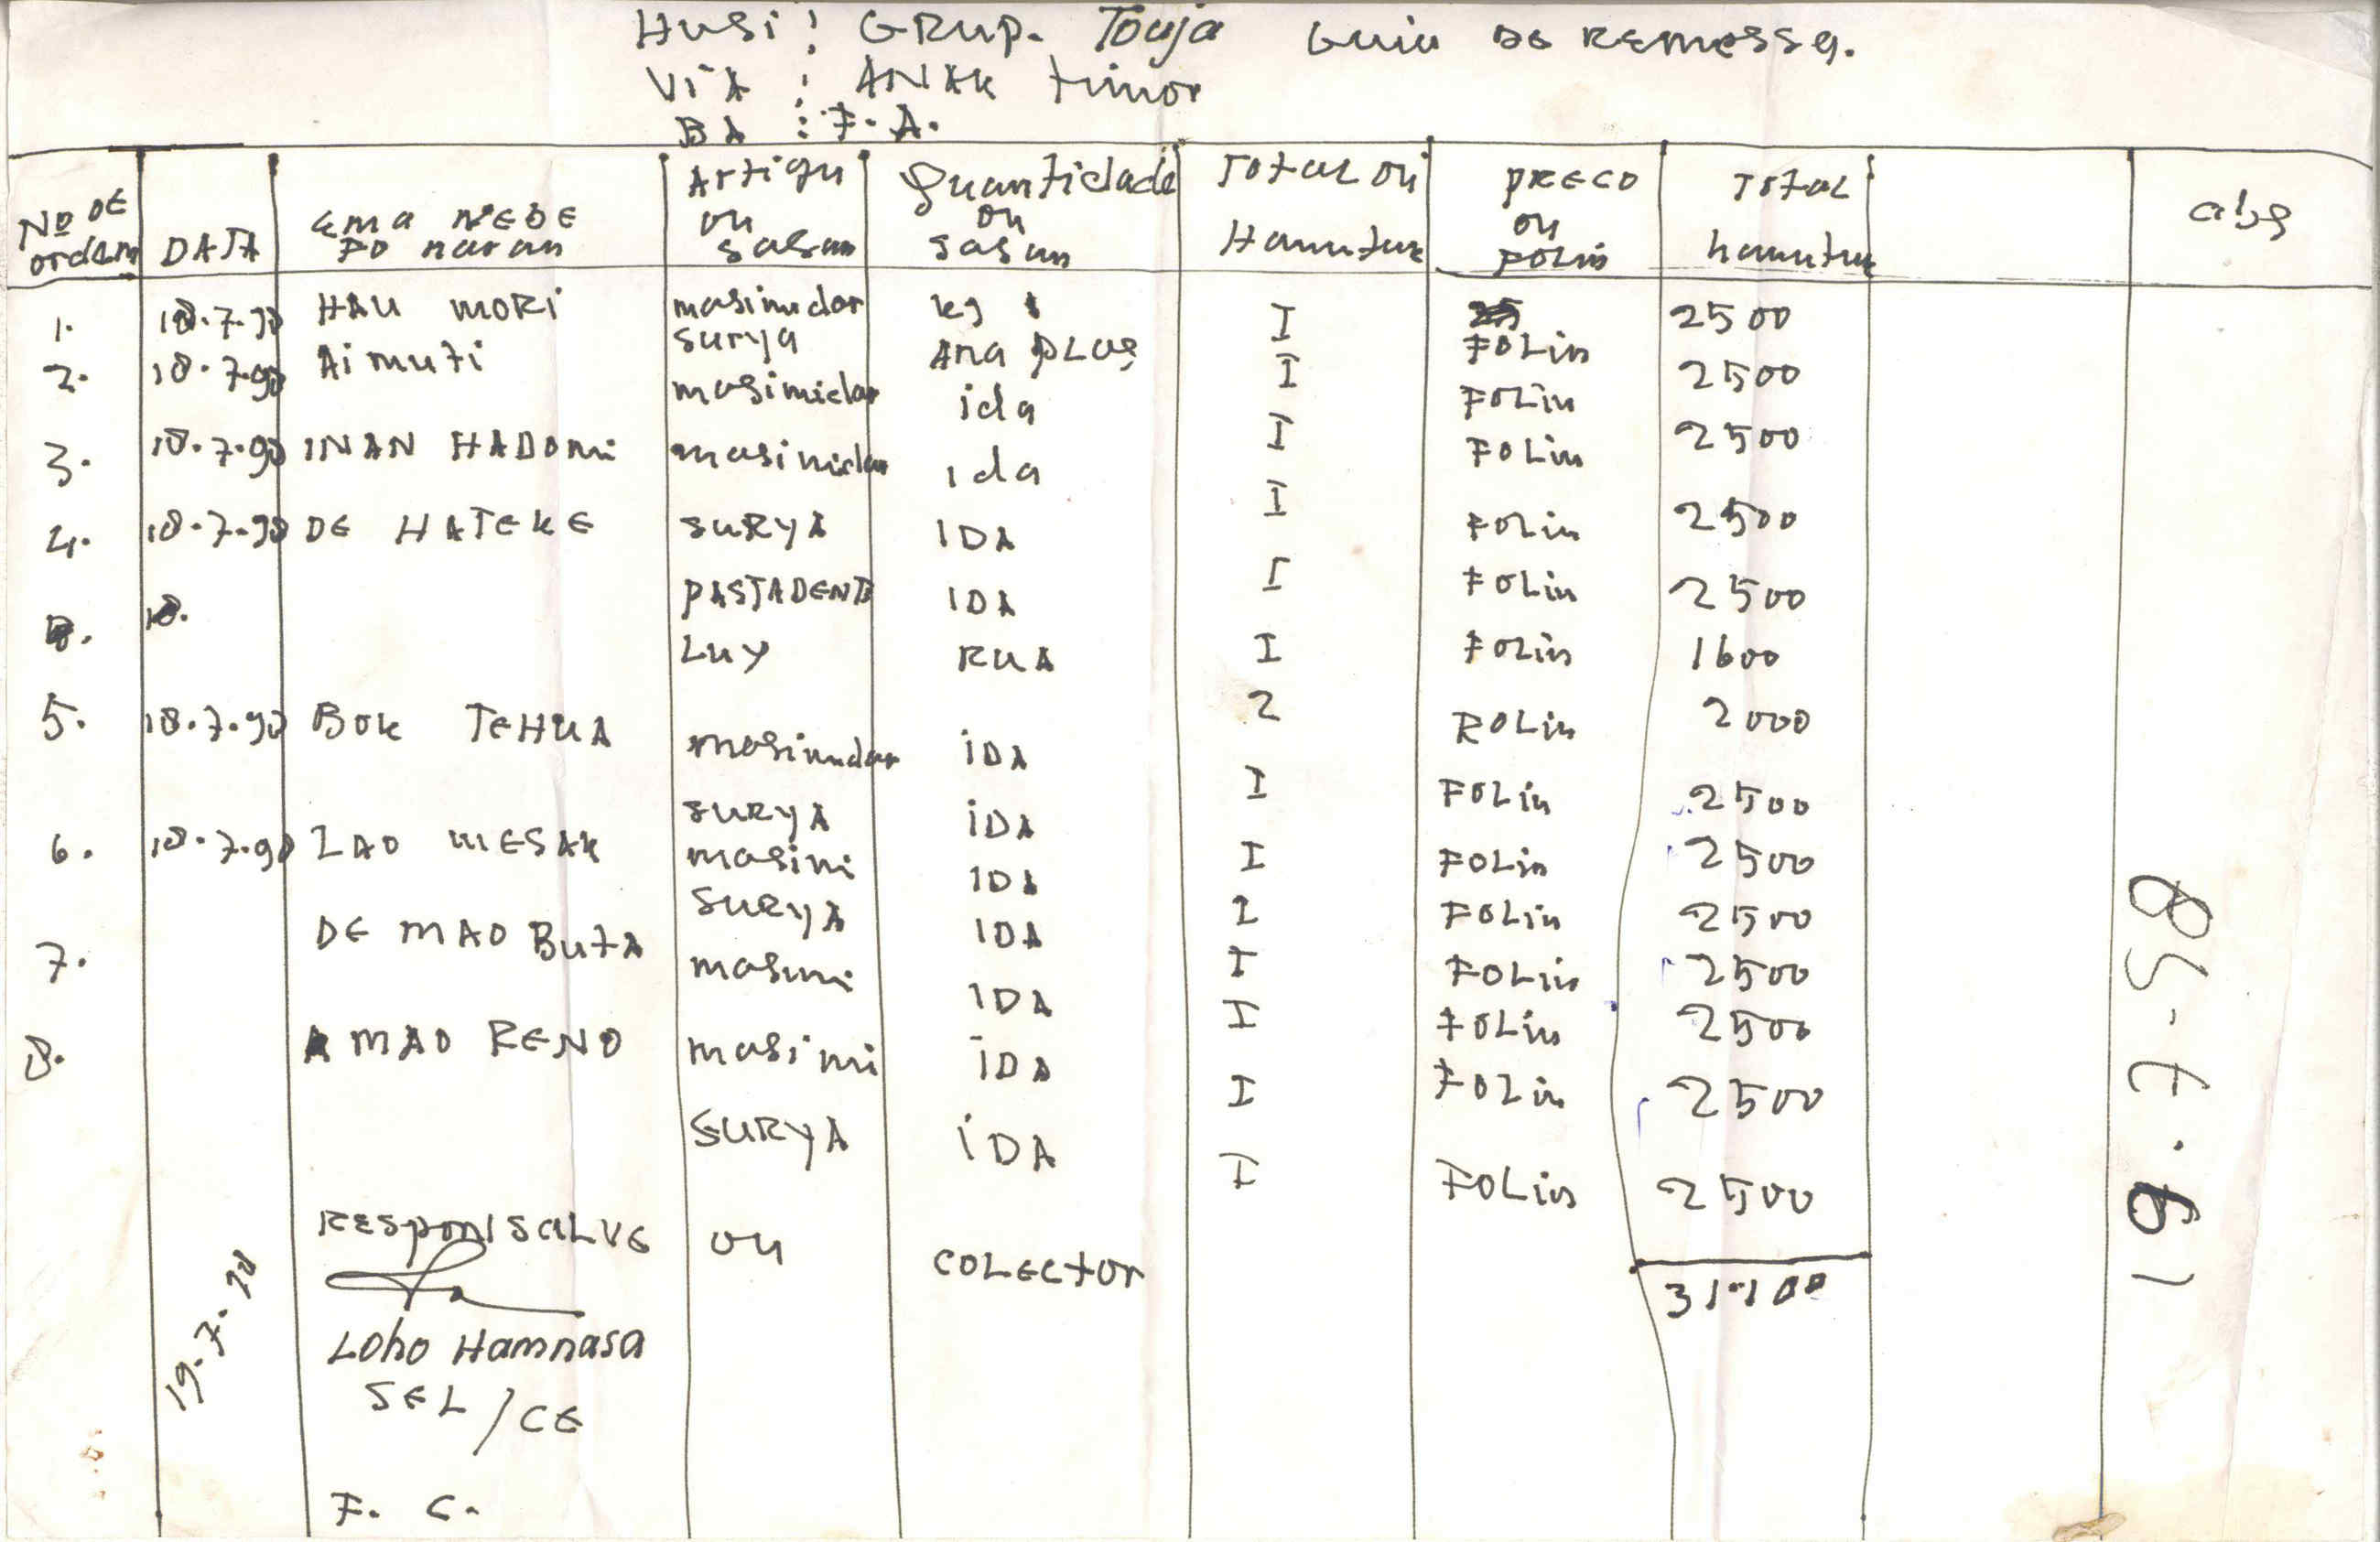 Husi : GRup. Touja Guia De Remessa.
ViA : ANAK timor
BA : F.A.
Nº DE ordem DATA Ema NEBE FO naran Artigu ou sasan Quantidade ou sasan Total ou Hamutuk PRECO ou FOLin Total hamutuk abs
1. 18.7.98 HAU MORi masimidar kg 1 I FOLin 2500
2. 18.7.98 Ai muti surya Ana PLUS I FOLin 2500
masimidar ida I FOLin 2500
3. 18.7.98 INAN HADOMi masimidar ida I FOLin 2500
4. 18.7.98 DE HATEKE SURYA IDA I FOLin 2500
18. PASTADENTE IDA I FOLin 1600
LUY RUA 2 ROLin 2000
5. 18.7.98 BOK TEHUA masimidar iDA I FOLin 2500
SURYA iDA I FOLin 2500
6. 18.7.98 LAO MESAK masimi IDA I FOLin 2500
SURYA IDA I FOLin 2500
7. DE MAO ButA masimi IDA I FOLin 2500
8. A MAO RENO masimi iDA I FOLin 2500
SURYA iDA I FOLin 2500
31.100
RESPONSALVE ou COLECTOR
Loho Hamnasa
SEL/CE
F. C.
19.7.98
19.7-98